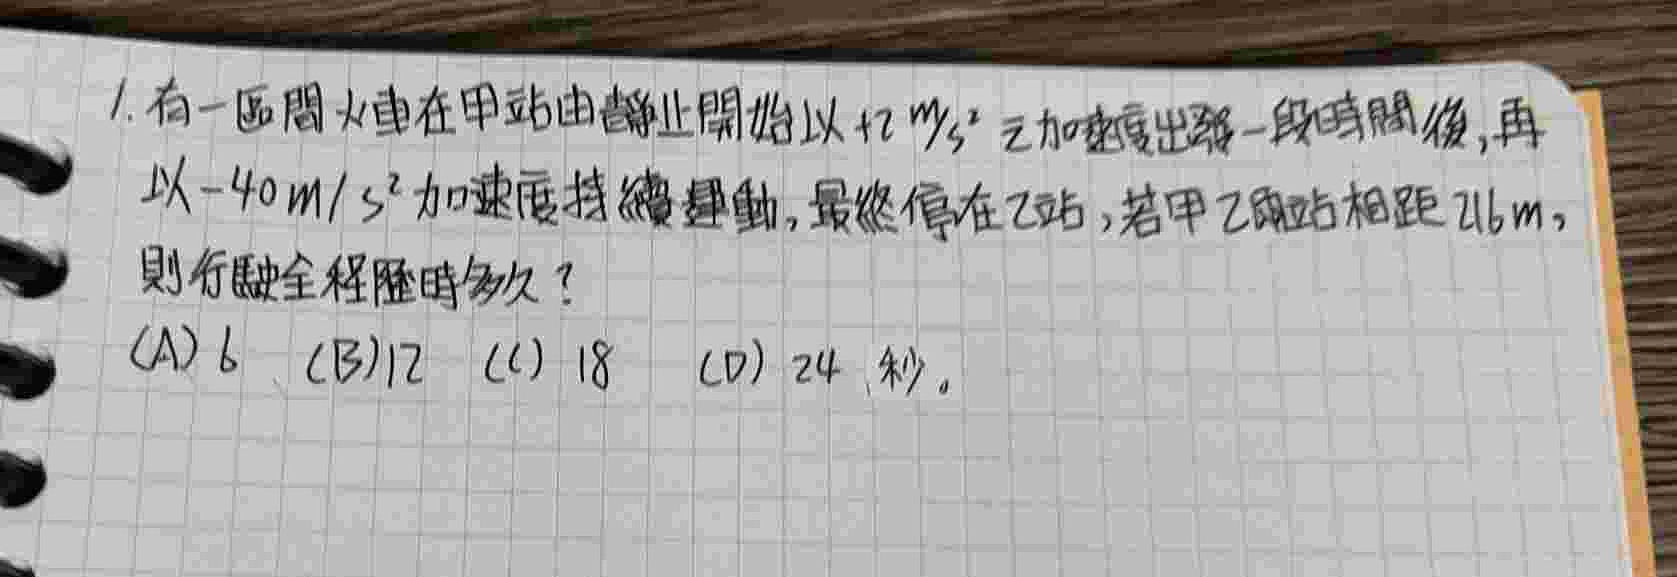 1. 有一區間火車在甲站由靜止開始以+2 m/s² 之加速度出發一段時間後,再
以-40m/s²加速度持續運動,最終停在乙站,若甲乙兩站相距216m,
則行駛全程歷時多久?
(A) 6 (B)12 (C) 18 (D) 24 秒。